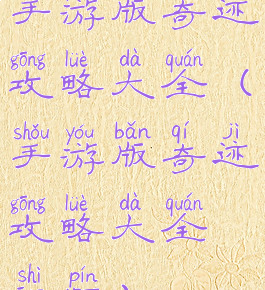 手游版奇迹
gōng lüè dà quán
攻略大全（
shǒu yóu bǎn qí jì
手游版奇迹
gōng lüè dà quán
攻略大全
shì pín